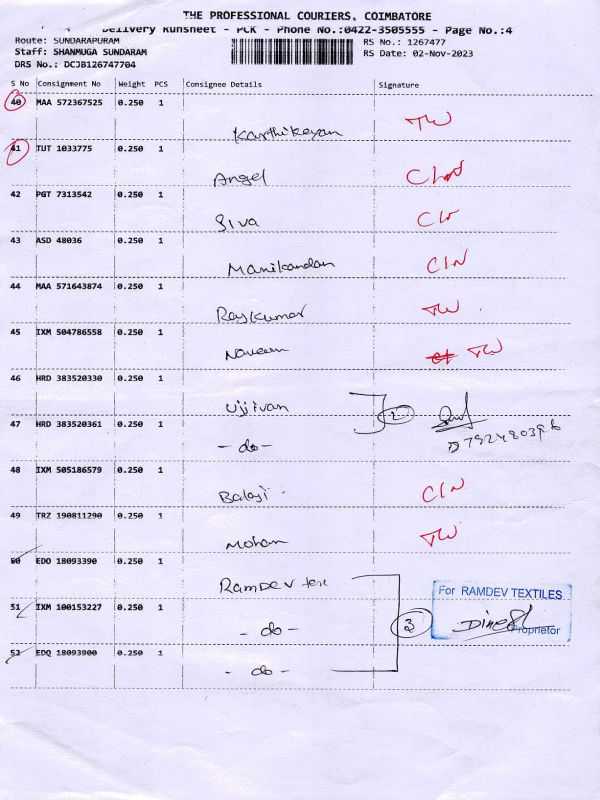 THE PROFESSIONAL COURIERS, COIMBATORE
Delivery Runsheet - PCK - Phone No.:0422-3505555 - Page No.:4
Route: SUNDARAPURAM
RS No.: 1267477
Staff: SHANMUGA SUNDARAM
RS Date: 02-Nov-2023
DRS No.: DCJB126747704
S No Consignment No Weight PCS Consignee Details Signature
40 MAA 572367525 0.250 1
Karthikeyan TW
41 TUT 1033775 0.250 1
Angel
42 PGT 7313542 0.250 1
Siva
43 ASD 48036 0.250 1
Manikandan CIN
44 MAA 571643874 0.250 1
Rajkumar TW
45 IXM 504786558 0.250 1
Naveen TW
46 HRD 383520330 0.250 1
Ujjivan 2
47 HRD 383520361 0.250 1
- do -
48 IXM 505186579 0.250 1
Balaji CIN
49 TRZ 190811290 0.250 1
Mohan TW
50 EDO 18093390 0.250 1
Ramdev tex
For RAMDEV TEXTILES
51 IXM 100153227 0.250 1
- do - 3 Dinesh
Proprietor
52 EDQ 18093900 0.250 1
- do -